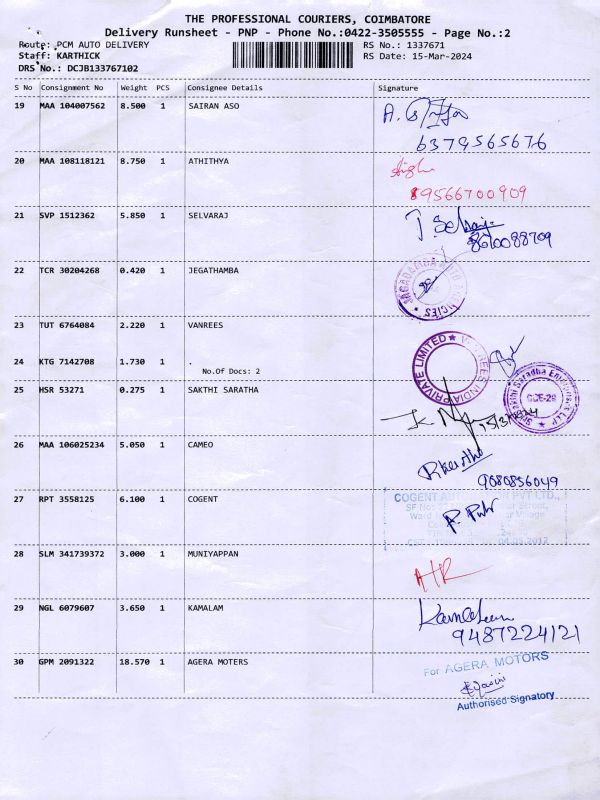 THE PROFESSIONAL COURIERS, COIMBATORE
Delivery Runsheet - PNP - Phone No.:0422-3505555 - Page No.:2
Route: PCM AUTO DELIVERY RS No.: 1337671
Staff: KARTHICK RS Date: 15-Mar-2024
DRS No.: DCJB133767102
S No Consignment No Weight PCS Consignee Details Signature
19 MAA 104007562 8.500 1 SAIRAN ASO
6379565676
20 MAA 108118121 8.750 1 ATHITHYA
89566700909
21 SVP 1512362 5.850 1 SELVARAJ
8610088709
22 TCR 30204268 0.420 1 JEGATHAMBA
23 TUT 6764084 2.220 1 VANREES
PRIVATE LIMITED
24 KTG 7142708 1.730 1 .
No.Of Docs: 2
25 HSR 53271 0.275 1 SAKTHI SARATHA
26 MAA 106025234 5.050 1 CAMEO
9080856049
27 RPT 3558125 6.100 1 COGENT
COGENT PVT LTD.,
28 SLM 341739372 3.000 1 MUNIYAPPAN
29 NGL 6079607 3.650 1 KAMALAM
9487224121
30 GPM 2091322 18.570 1 AGERA MOTERS
For AGERA MOTORS
Authorised Signatory